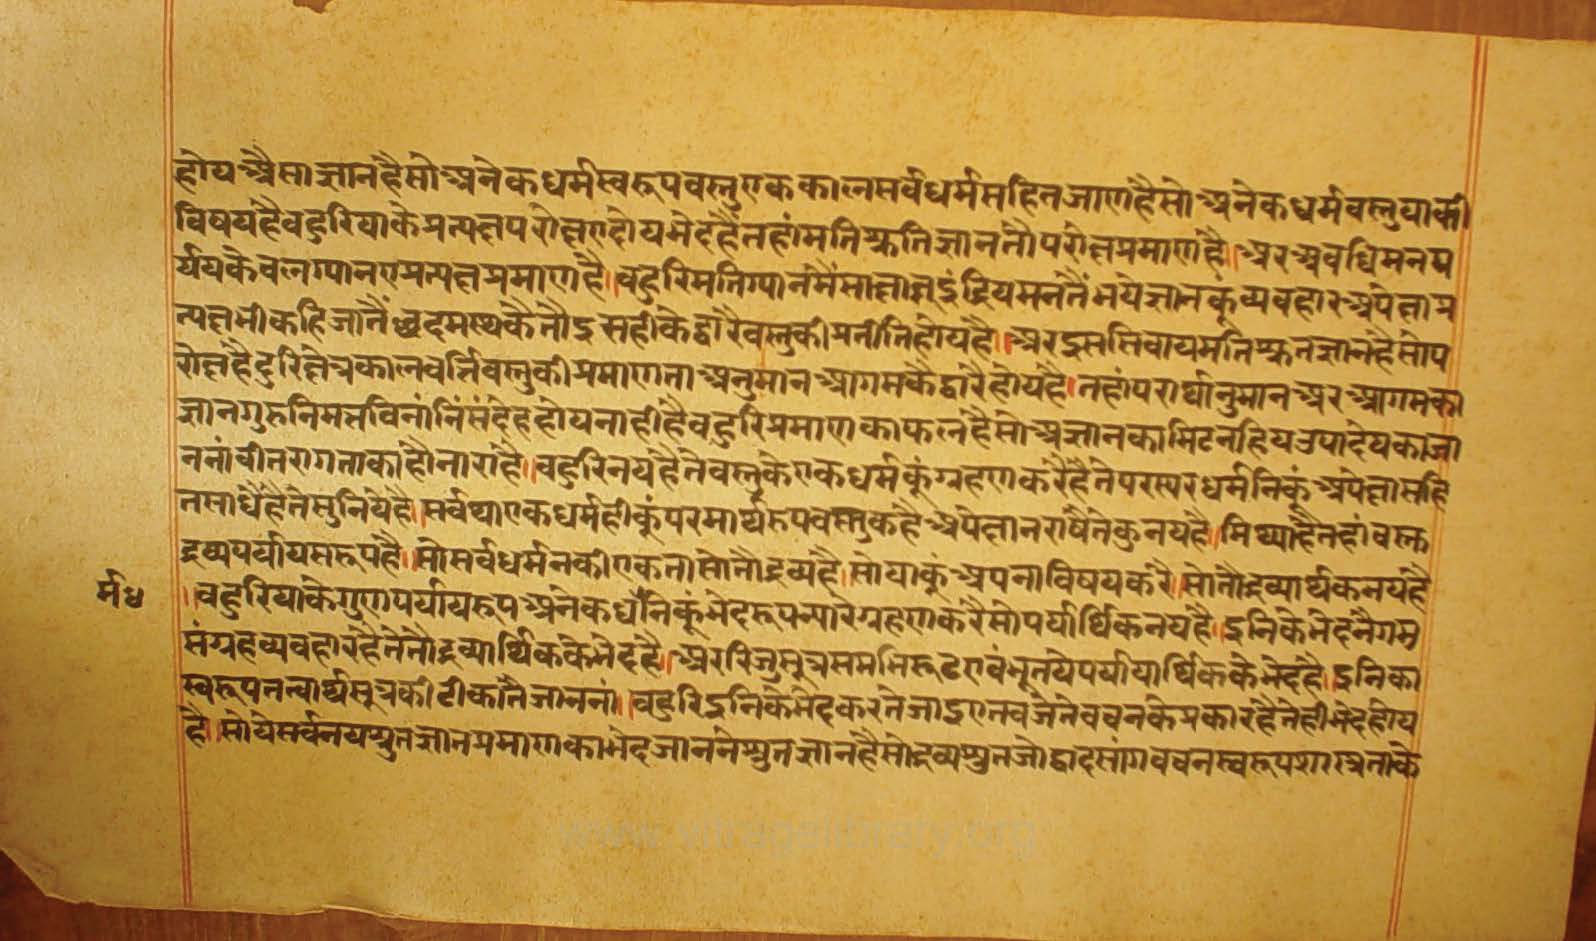 होय अैसा ज्ञान है सो अनेक धर्मस्वरूप वस्तु एक काल सर्व धर्म सहित जाण है सो अनेक धर्म वस्तु या की
विषय है वहुरि या के प्रत्यक्ष परोक्ष ए दोय भेद हैं तहां मति श्रुति ज्ञान तौ परोक्ष प्रमाण हैं। अर अवधि मनप
र्यय केवल ग्यान ए प्रत्यक्ष प्रमाण है। वहुरि मति ग्यान मैं इंद्रिय मन तैं भये ज्ञान कूं व्यवहार अपेक्षा प्र
त्यक्ष भी कहि जातैं कै तौ इस ही के द्वारै वस्तु की प्रतीति होय है। अर इस सिवाय मति श्रुत ज्ञान है सो प
रोक्ष है दुरि क्षेत्र काल वर्त्ति वस्तु की प्रमाणता अनुमान आगम कै द्वारै होय है। तहां परार्थानुमान अर आगम का
ज्ञान गुरु निमत्त विनां निसंदेह होय नाही है वहुरि प्रमाण का फल है सो अज्ञान का मिटन हेय उपादेय का जा
ननां वीतरागता का होना है। वहुरि नय है ते वस्तु के एक धर्म कूं ग्रहण करै है ते परस्पर धर्मनि कूं अपेक्षा सहि
त साधै है ते सुनिये है। सर्वथा एक धर्म ही कुं परमार्थरूप वस्तु कहै अपेक्षा न राषै ते कुनय है। मिथ्या है तहां वस्त
द्रव्यपर्याय सरूप है। सो सर्व धर्मन की एकता सो तौ द्रव्य है। सो या कुं अपना विषय करै। सो तौ द्रव्यार्थक नय है
र्मध
। वहुरि या के गुण पर्यायरूप अनेक धर्मनि कूं भेदरूप न्यारे ग्रहण करै सो पर्यार्थिक नय है। इनि के भेद नैगम
संग्रह व्यवहार है ते तौ द्रव्यार्थिक के भेद है। अर रिजुसूत्र समभिरूढ एवंभूत ये पर्यायार्थिक के भेद है। इनि का
स्वरूप तत्वार्थसूत्र की टीका तै जाननां। वहुरि इनि के भेद करते जाइए तव जेते वचन के प्रकार है तेही भेद होय
है। सो ये सर्व नय श्रुतज्ञान प्रमाण का भेद जानने श्रुतज्ञान है सो द्रव्यश्रुत जो द्वादसांग वचन स्वरूप शास्त्र ता के
www.vitragalibrary.org